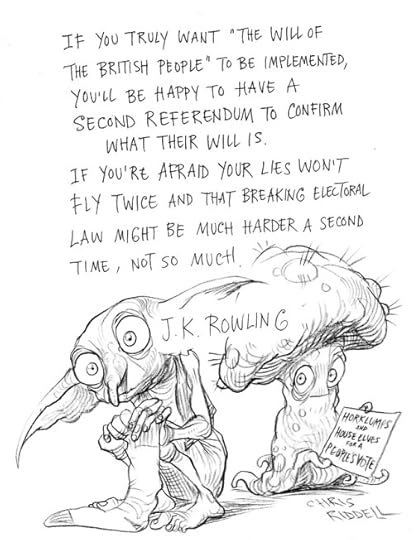 IF YOU TRULY WANT "THE WILL OF
THE BRITISH PEOPLE" TO BE IMPLEMENTED,
YOU'LL BE HAPPY TO HAVE A
SECOND REFERENDUM TO CONFIRM
WHAT THEIR WILL IS.
IF YOU'RE AFRAID YOUR LIES WON'T
FLY TWICE AND THAT BREAKING ELECTORAL
LAW MIGHT BE MUCH HARDER A SECOND
TIME, NOT SO MUCH.
J.K. ROWLING
HORKLUMPS
AND
HOUSE ELVES
FOR A
PEOPLES VOTE
CHRIS
RIDDELL